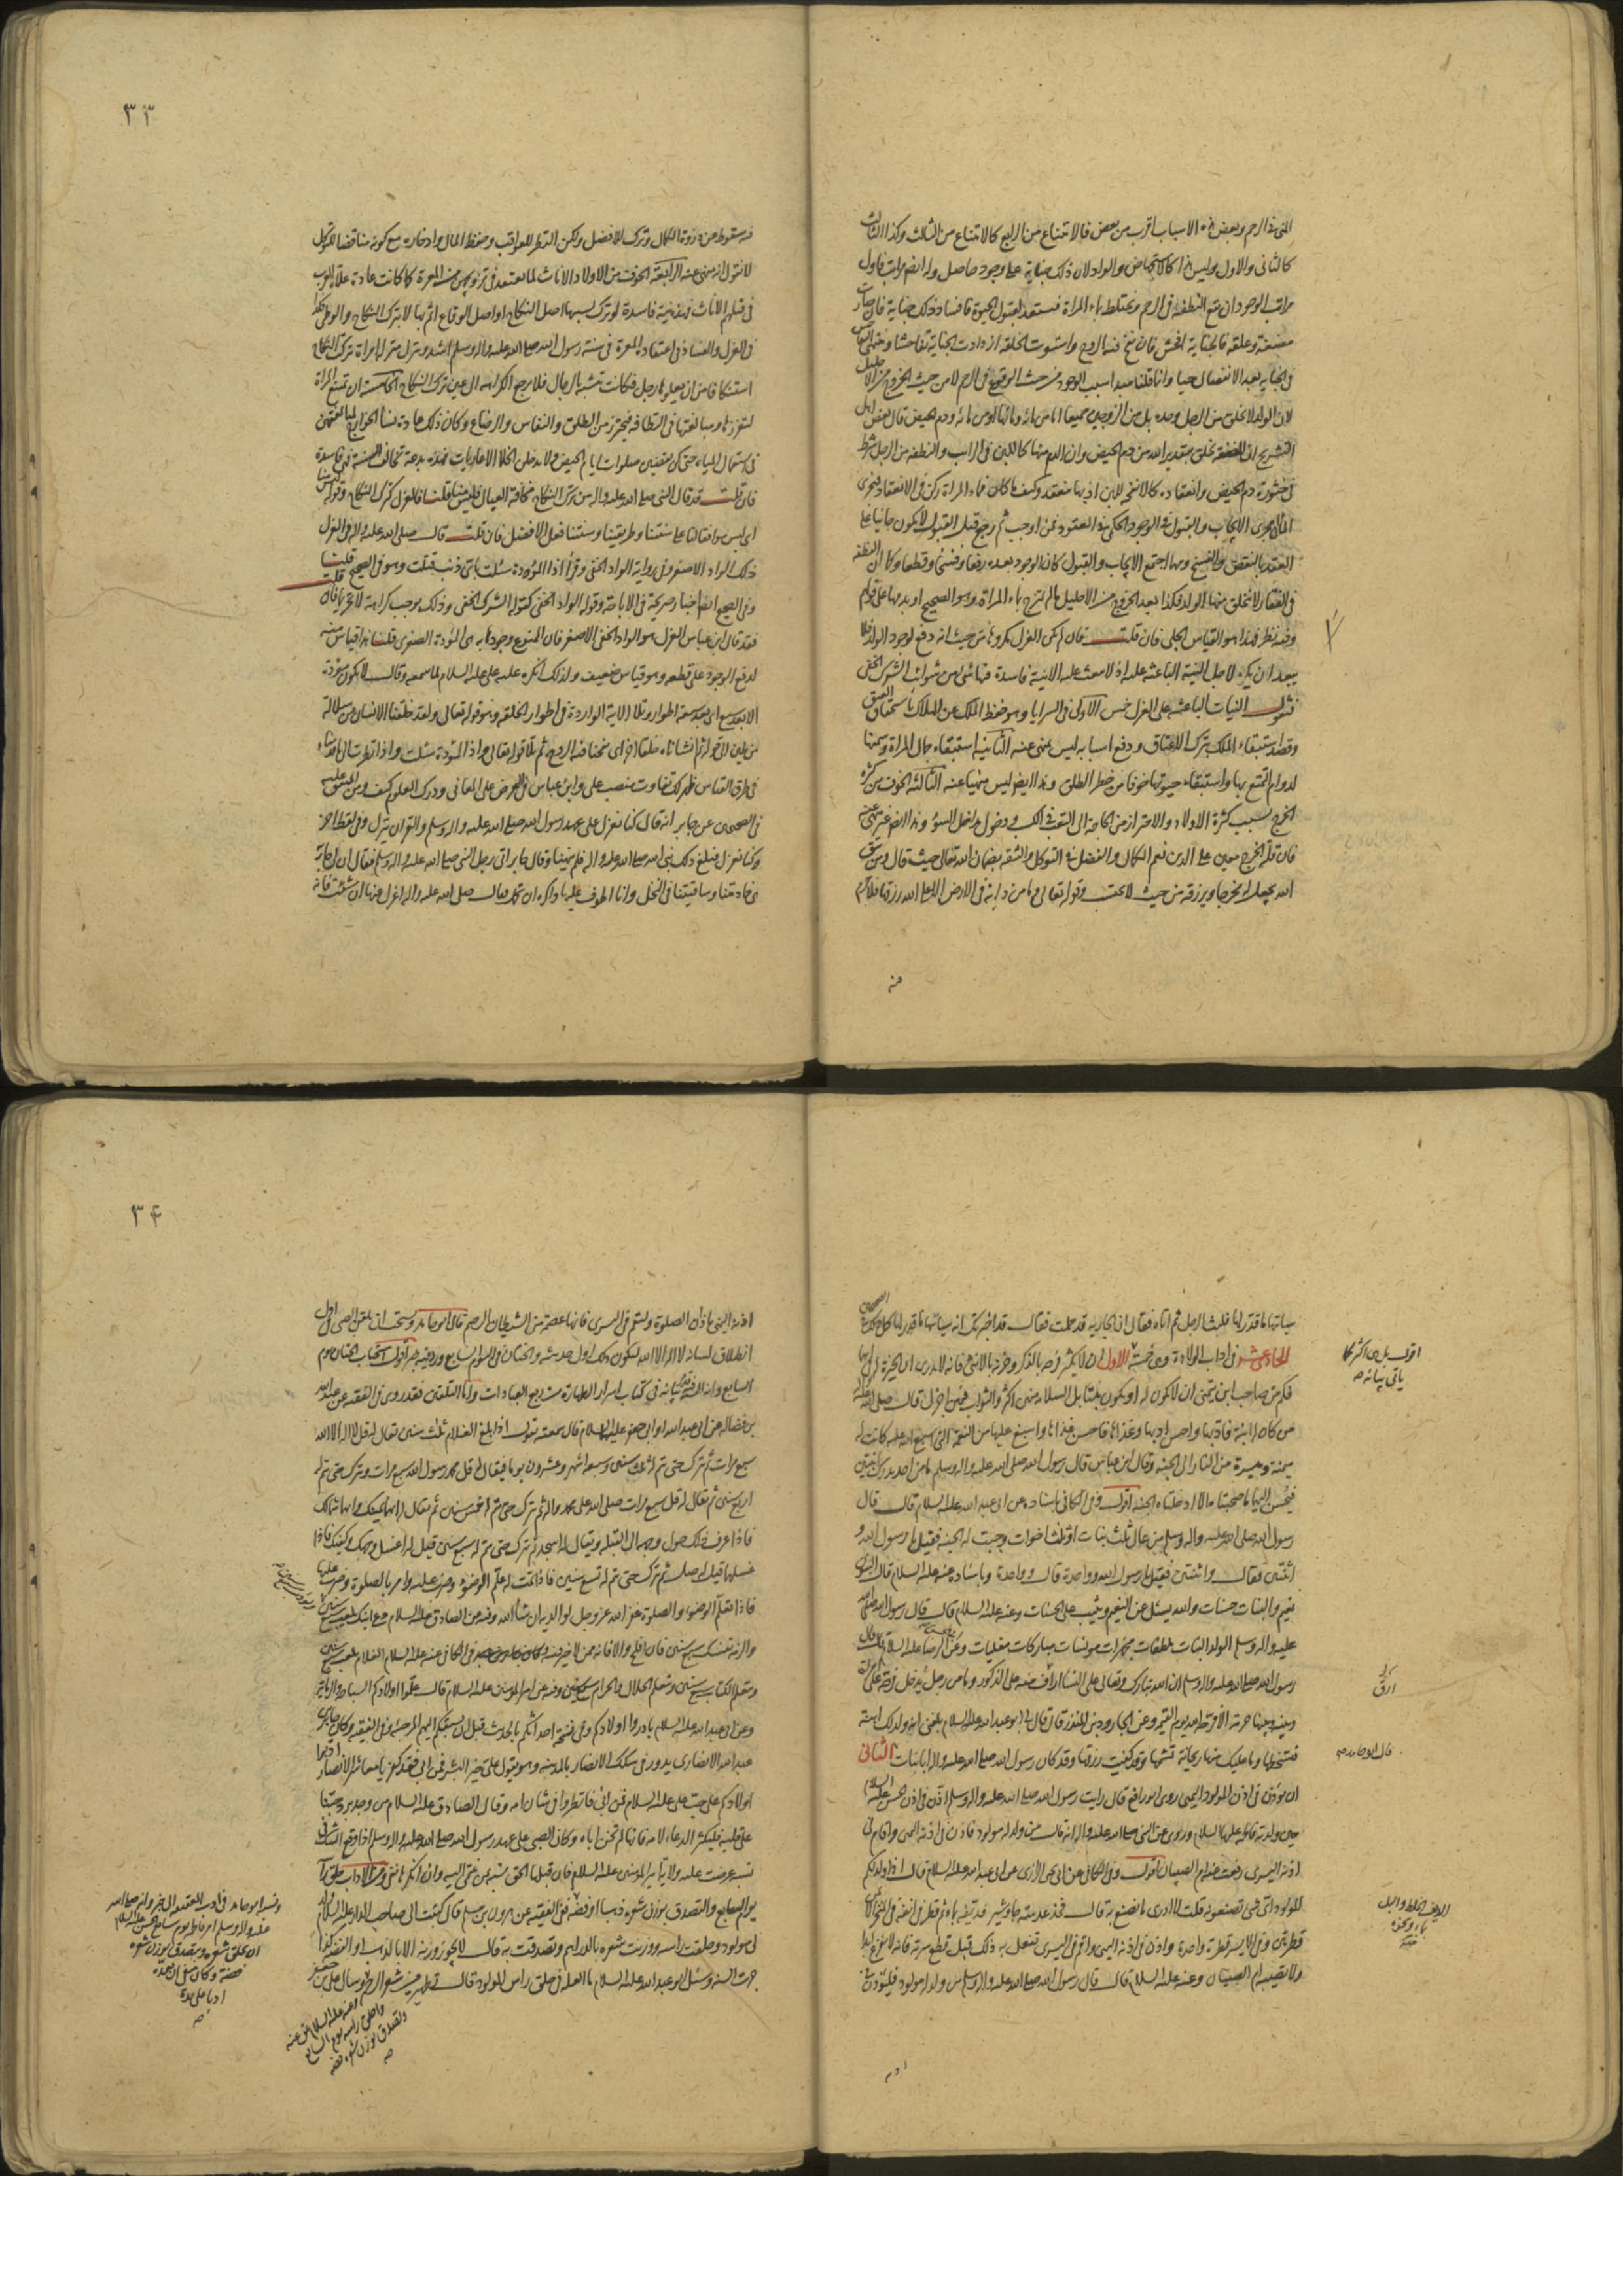 المنى فى الرحم وبعض هذه الاسباب اقرب من بعض فالامتناع من الرابع كالامتناع من الثالث وكذا الثالث
كالثانى والاول وليس هذا كالاجهاض والواد لان ذلك جناية على وجود حاصل وله ايضا مراتب فاول
مراتب الوجود ان تقع النطفة فى الرحم وتختلط بماء المراة فتستعد لقبول الحيوة فافساد ذلك جناية فان صارت
مضغة وعلقة فالجناية افحش فان نفخ فيه الروح واستوت الخلقة ازدادت الجناية تفاحشا ومنتهى التفاحش
فى الجناية بعد الانفصال حيا وانما قلنا مبدا سبب الوجود من حيث الوقوع فى الرحم لا من حيث الخروج من الاحليل
لان الولد لا يخلق من الرجل وحده بل من الزوجين جميعا اما من مائه ومائها او من مائه ودم الحيض قال بعض اهل
التشريح ان المضغة تخلق بتقدير الله من دم الحيض وان الدم منها كاللبن فى الرائب والنطفة من الرجل شرط
فى خثورة دم الحيض وانعقاده كالانفحة للبن اذ بها ينعقد وكيف ما كان فماء المراة ركن فى الانعقاد فيجرى
الماآن مجرى الايجاب والقبول فى الوجود الحكمى فى العقود فمن اوجب ثم رجع قبل القبول لا يكون جانيا على
العقد بالنقض والفسخ ومهما اجتمع الايجاب والقبول كان الرجوع بعده رفعا وفسخا وقطعا وكما ان النطفة
فى الفقار لا يتخلق منها الولد فكذا بعد الخروج من الاحليل ما لم تمتزج بماء المراة وهو الصحيح او بدمها على قوام
وفيه نظر فهذا هو القياس الجلى فان قلت فان لم يكن العزل مكروها من حيث انه دفع لوجود الولد فلا
يبعد ان يكره لاجل النية الباعثة عليه اذ لا يبعث عليه الا نية فاسدة فيها شئ من شوائب الشرك الخفى
فنقول النيات الباعثة على العزل خمس الاولى فى السرايا وهو حفظ الملك عن الهلاك باستحقاق العتق
وقصد استبقاء الملك بترك الاعتاق ودفع اسبابه ليس بمنهى عنه الثانية استبقاء جمال المراة وسمنها
لدوام التمتع بها واستبقاء حيوتها خوفا من خطر الطلق وهذا ايضا ليس منهيا عنه الثالثة الخوف من كثرة
الحرج بسبب كثرة الاولاد والاحتراز من الحاجة الى التعب فى الكسب ودخول مداخل السوء وهذا ايضا غير منهى عنه
فان قلة الحرج معين على الدين نعم الكمال والفضل فى التوكل والثقة بضمان الله تعالى حيث قال ومن يتق
الله يجعل له مخرجا ويرزقه من حيث لا يحتسب وقوله تعالى وما من دابة فى الارض الا على الله رزقها فلا جرم
فيه
٣٣
فيه سقوط عن ذروة الكمال وترك للافضل ولكن النظر للعواقب وحفظ المال وادخاره مع كونه مناقضا للتوكل
لا نقول انه منهى عنه الرابعة الخوف من الاولاد الاناث لما يعتقد فى تزويجهن من المعرة كما كانت عادة العرب
فى قتلهم الاناث فهذه نية فاسدة لو ترك بسببها اصل النكاح او اصل الوقاع اثم بها لا بترك النكاح والوطئ فكذا
فى العزل والفساد فى اعتقاد المعرة فى سنة رسول الله صلى الله عليه واله وسلم اشد وينزل منزلة امراة تركت النكاح
استنكافا من ان يعلوها رجل فكانت تتشبه بالرجال فلا يرجع الكراهة الى عين ترك النكاح الخامسة ان تمتنع المراة
لتعززها ومبالغتها فى النظافة فتحترز من الطلق والنفاس والرضاع وكان ذلك عادة نساء الخوارج لمبالغتهن
فى استعمال المياه حتى كن يقضين صلوات ايام الحيض ولا يدخلن الخلاء الا عاريات فهذه بدعة تخالف السنة فهى فاسدة
فان قلت قد قال النبى صلى الله عليه واله من ترك النكاح مخافة العيال فليس منا قلنا فالعزل كترك النكاح وقوله ليس منا
اى ليس موافقا لنا على سنتنا وطريقتنا وسنتنا فعل الافضل فان قلت قال صلى الله عليه واله فى العزل
ذلك الواد الاصغر وفى رواية الواد الخفى وقرأ اذا الموؤدة سئلت باى ذنب قتلت وهو فى الصحيح قلنا
وفى الصحيح ايضا اخبار صريحة فى الاباحة وقوله الواد الخفى كقوله الشرك الخفى وذلك يوجب كراهة لا تحريما فان قلت
فقد قال ابن عباس العزل هو الواد الخفى الاصغر فان الممنوع وجوده به هى الموؤدة الصغرى قلنا هذا قياس منه
لدفع الوجود على قطعه وهو قياس ضعيف ولذلك انكره عليه على عليه السلام لما سمعه وقال لا يكون موؤدة
الا بعد سبع اى بعد سبعة اطوار وتلا الاية الواردة فى اطوار الخلقة وهو قوله تعالى ولقد خلقنا الانسان من سلالة
من طين الى قوله ثم انشاناه خلقا اخر اى نفخنا فيه الروح ثم تلا قوله تعالى واذا الموؤدة سئلت واذا نظرت الى ما قدمناه
فى طرق القياس ظهر لك تفاوت منصب على وابن عباس فى الغوص على المعانى ودرك العلوم كيف وفى المتفق عليه
فى الصحيحين عن جابر انه قال كنا نعزل على عهد رسول الله صلى الله عليه واله وسلم والقران ينزل وفى لفظ اخر
وكنا نعزل فبلغ ذلك نبى الله صلى الله عليه واله فلم ينهنا وقال جابر اتى رجل النبى صلى الله عليه واله وسلم فقال ان لى جارية
هى خادمتنا وساقيتنا فى النخل وانا اطوف عليها واكره ان تحمل فقال صلى الله عليه واله اعزل عنها ان شئت فانه
سياتيها ما قدر لها فلبث الرجل ثم اتاه فقال ان الجارية قد حملت فقال قد اخبرتك انه سياتيها ما قدر لها كل ذلك فى الصحيحين
الحادى عشر فى اداب الولادة وهى خمسة الاول ان لا يكثر فرحه بالذكر وحزنه بالانثى فانه لا يدرى ان الخيرة له فى ايهما
فكم من صاحب ابن يتمنى ان لا يكون له او يكون بنتا بل السلامة منهن اكثر والثواب فيهن اجزل قال صلى الله عليه واله
من كان له ابنة فادبها واحسن ادبها وغذاها فاحسن غذاها واسبغ عليها من النعمة التى اسبغ الله عليه كانت له
ميمنة وميسرة من النار الى الجنة وقال ابن عباس قال رسول الله صلى الله عليه واله وسلم ما من احد يدرك ابنتين
فيحسن اليهما ما صحبتاه الا ادخلتاه الجنة اقول وفى الكافى باسناده عن ابى عبد الله عليه السلام قال قال
رسول الله صلى الله عليه واله وسلم من عال ثلث بنات او ثلث اخوات وجبت له الجنة فقيل يا رسول الله و
اثنتين فقال واثنتين فقيل يا رسول الله وواحدة قال وواحدة وباسناده عنه عليه السلام قال البنون
نعيم والبنات حسنات والله يسئل عن النعيم ويثيب على الحسنات وعنه عليه السلام قال قال رسول الله صلى الله
عليه واله وسلم نعم الولد البنات ملطفات مجهزات مونسات مباركات مفليات وعن الرضا عليه السلام قال قال
رسول الله صلى الله عليه واله وسلم ان الله تبارك وتعالى على النساء ارأف منه على الذكور وما من رجل يدخل فرحة على امراة
وبينه وبينها حرمة الا فرحه الله يوم القيمة وعن الجارود بن المنذر قال قال لى ابو عبد الله عليه السلام بلغنى انه ولد لك ابنة
فتسخطها وما عليك منها ريحانة تشمها وقد كفيت رزقها وقد كان رسول الله صلى الله عليه واله ابا بنات الثانى
ان يؤذن فى اذن المولود اليمنى روى ابو رافع قال رايت رسول الله صلى الله عليه واله وسلم اذن فى اذن الحسن عليه السلام
حين ولدته فاطمة عليها السلام وروى عن النبى صلى الله عليه واله انه قال من ولد له مولود فاذن فى اذنه اليمنى واقام فى
اذنه اليسرى رفعت عنه ام الصبيان اقول وفى الكافى عن ابى يحيى الرازى عن ابى عبد الله عليه السلام قال اذا ولد لكم
المولود اى شئ تصنعون به قلت لا ادرى ما نصنع به قال فخذ عدسة جاوشير فديفه بماء ثم قطر فى انفه فى المنخر الايمن
قطرتين وفى الايسر قطرة واحدة واذن فى اذنه اليمنى واقم فى اليسرى تفعل به ذلك قبل قطع سرته فانه لا يفزع ابدا
ولا تصيبه ام الصبيان وعنه عليه السلام قال قال رسول الله صلى الله عليه واله وسلم من ولد له مولود فليؤذن فى
اذنه
اقول بل هى اكثر كما
ياتى بيانه صه
ارق
قال ابو حامد صه
الدوف الخلط والبل
بماء ونحوه
٣۴
اذنه اليمنى باذان الصلوة وليقم فى اليسرى فانها عصمة من الشيطان الرجيم قال ابو حامد ويستحب ان يلقن الصبى فى اول
انطلاق لسانه لا اله الا الله ليكون ذلك اول حديثه والختان فى اليوم السابع ورد فيه خبر اقول استحباب الختان يوم
السابع وانه السنة قد مر بيانه فى كتاب اسرار الطهارة من ربع العبادات واما التلقين فقد روى فى الفقيه عن عبد الله
بن فضالة عن ابى عبد الله او ابى جعفر عليهما السلام قال سمعته يقول اذا بلغ الغلام ثلث سنين يقال له قل لا اله الا الله
سبع مرات ثم يترك حتى تم له ثلث سنين وسبعة اشهر وعشرون يوما فيقال له قل محمد رسول الله سبع مرات ويترك حتى تم له
اربع سنين ثم يقال له قل سبع مرات صلى الله على محمد واله ثم يترك حتى تم له خمس سنين ثم يقال له ايهما يمينك وايهما شمالك
فاذا عرف ذلك حول وجهه الى القبلة ويقال له اسجد ثم يترك حتى تم له سبع سنين قيل له اغسل وجهك وكفيك فاذا
غسلهما قيل له صل ثم يترك حتى تم له تسع سنين فاذا تمت له علم الوضوء وضرب عليه وامر بالصلوة وضرب عليها
فاذا تعلم الوضوء والصلوة غفر الله عز وجل لوالديه ان شاء الله وفيه عن الصادق عليه السلام دع ابنك يلعب سبع سنين
والزمه نفسك سبع سنين فان افلح والا فانه ممن لا خير فيه وفى الكافى عنه عليه السلام الغلام يلعب سبع سنين
ويتعلم الكتاب سبع سنين ويتعلم الحلال والحرام سبع سنين وفيه عن امير المؤمنين عليه السلام قال علموا اولادكم السباحة والرماية
وعن ابى عبد الله عليه السلام بادروا اولادكم وفى نسخة احداثكم بالحديث قبل ان يسبقكم اليهم المرجئة وفى الفقيه وكان جابر بن
عبد الله الانصارى يدور فى سكك الانصار بالمدينة وهو يقول على خير البشر فمن ابى فقد كفر يا معاشر الانصار ادبوا
اولادكم على حب على عليه السلام فمن ابى فانظروا فى شان امه وقال الصادق عليه السلام من وجد برد حبنا
على قلبه فليكثر الدعاء لامه فانها لم تخن اباه وكان الصبى على عهد رسول الله صلى الله عليه واله وسلم اذا وقع الشك فى
نسبه عرضت عليه ولاية امير المؤمنين عليه السلام فان قبلها الحق نسبه بمن ينتمى اليه وان انكرها نفى ومن الاداب حلق راسه
يوم السابع والتصدق بوزن شعره ذهبا او فضة ففى الفقيه عن هرون بن مسلم قال كتبت الى صاحب الدار عليه السلام ولد
لى مولود وحلقت راسه ووزنت شعره بالدراهم وتصدقت به قال لا يجوز وزنه الا بالذهب او الفضة وكذا
جرت السنة وسئل ابو عبد الله عليه السلام ما العلة فى حلق راس المولود قال تطهيره من شعر الرحم وسال على بن جعفر
ونسبه ابو حامد فى ادب العقيقة الى خبر وانه صلى الله
عليه واله وسلم امر فاطمة يوم سابع الحسين عليه السلام
ان يحلق شعره ويتصدق بوزن شعره
فضة
صه
وعنه عليه السلام عق عنه
واحلق راسه يوم السابع
وتصدق بوزن شعره فضة
صه